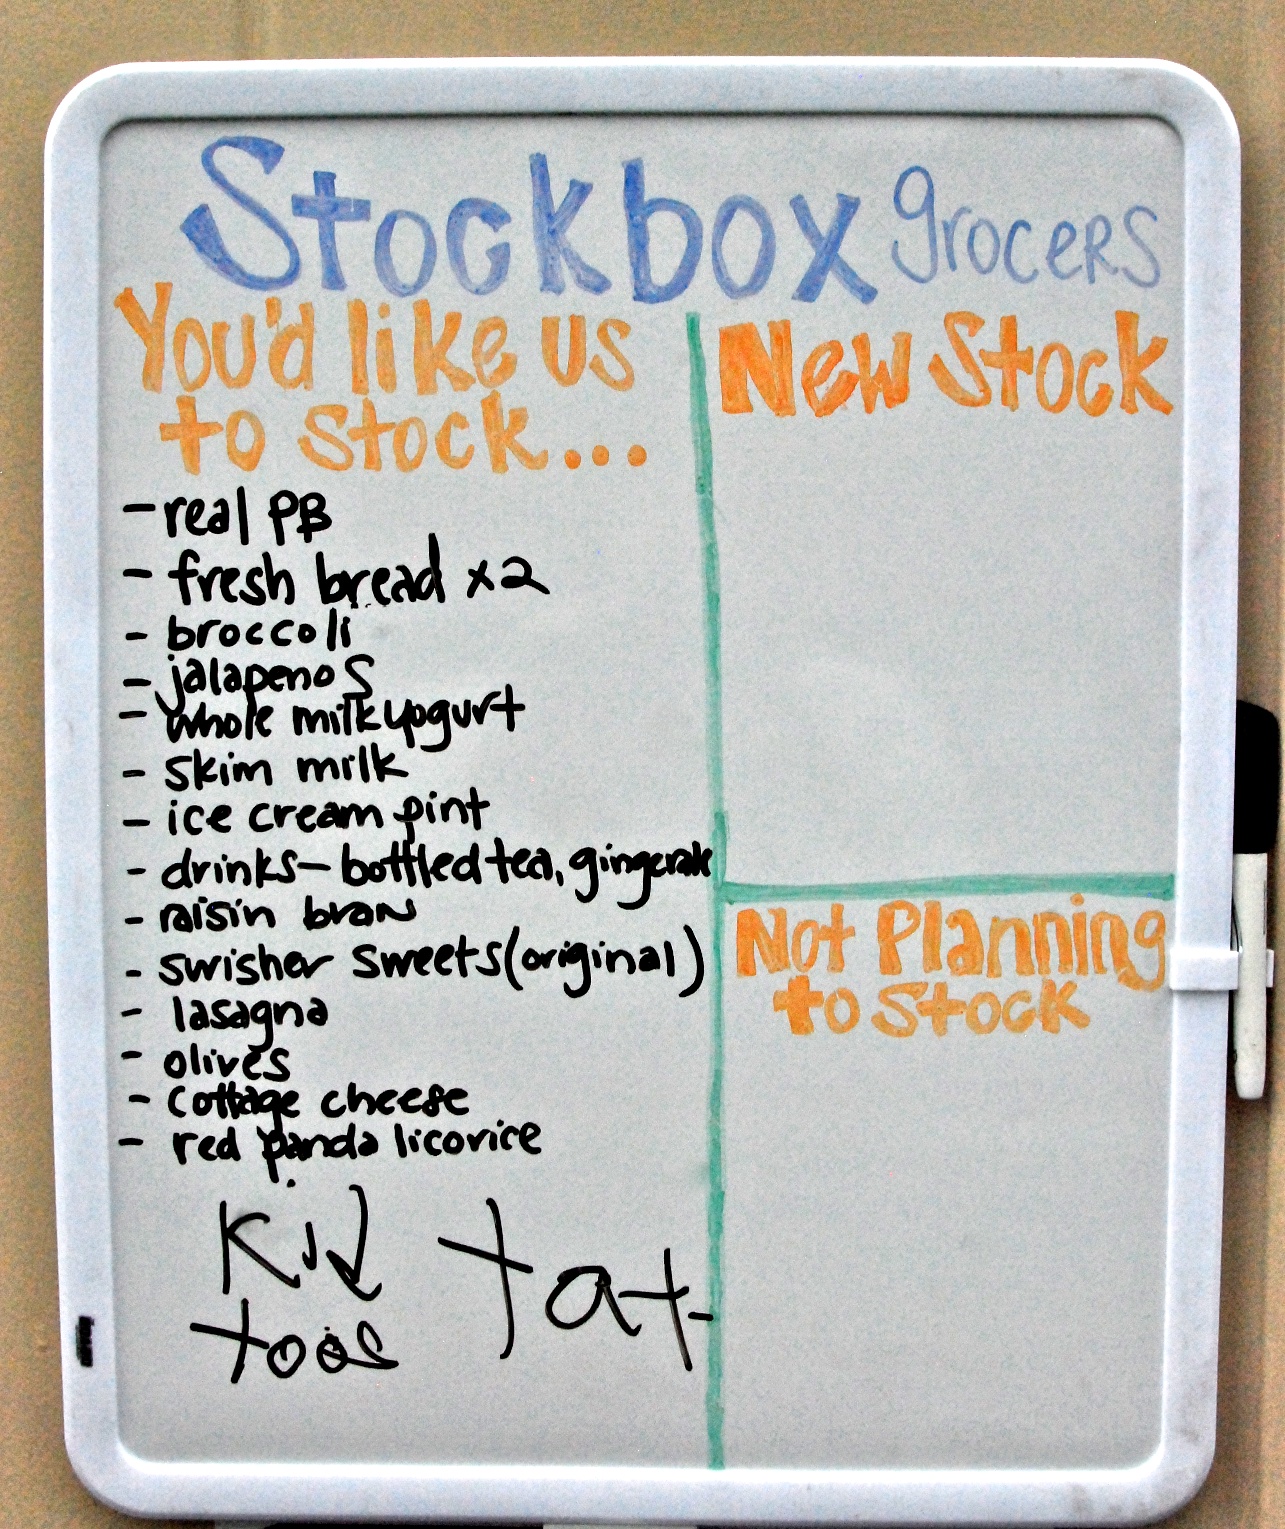 Stockbox grocers
You'd like us
to stock...
- real PB
- fresh bread x2
- broccoli
- jalapenos
- whole milk yogurt
- skim milk
- ice cream pint
- drinks - bottled tea, gingerale
- raisin bran
- swisher sweets (original)
- lasagna
- olives
- cottage cheese
- red panda licorice
New Stock
Not Planning
to Stock